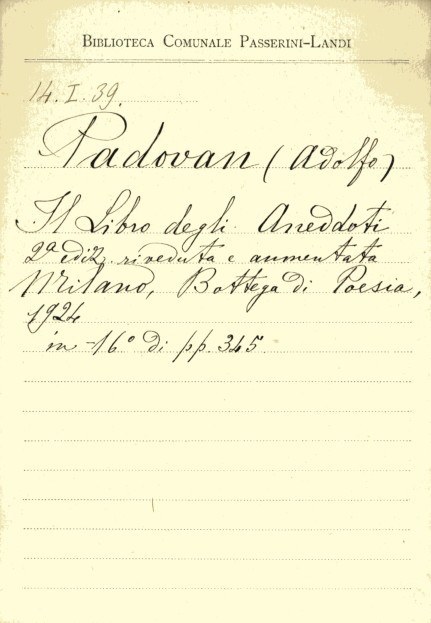 BIBLIOTECA COMUNALE PASSERINI-LANDI
14.I.39.
Padovan (Adolfo)
Il Libro degli Aneddoti
2ª ediz. riveduta e aumentata
Milano, Bottega di Poesia,
1924
in-16° di pp. 345.